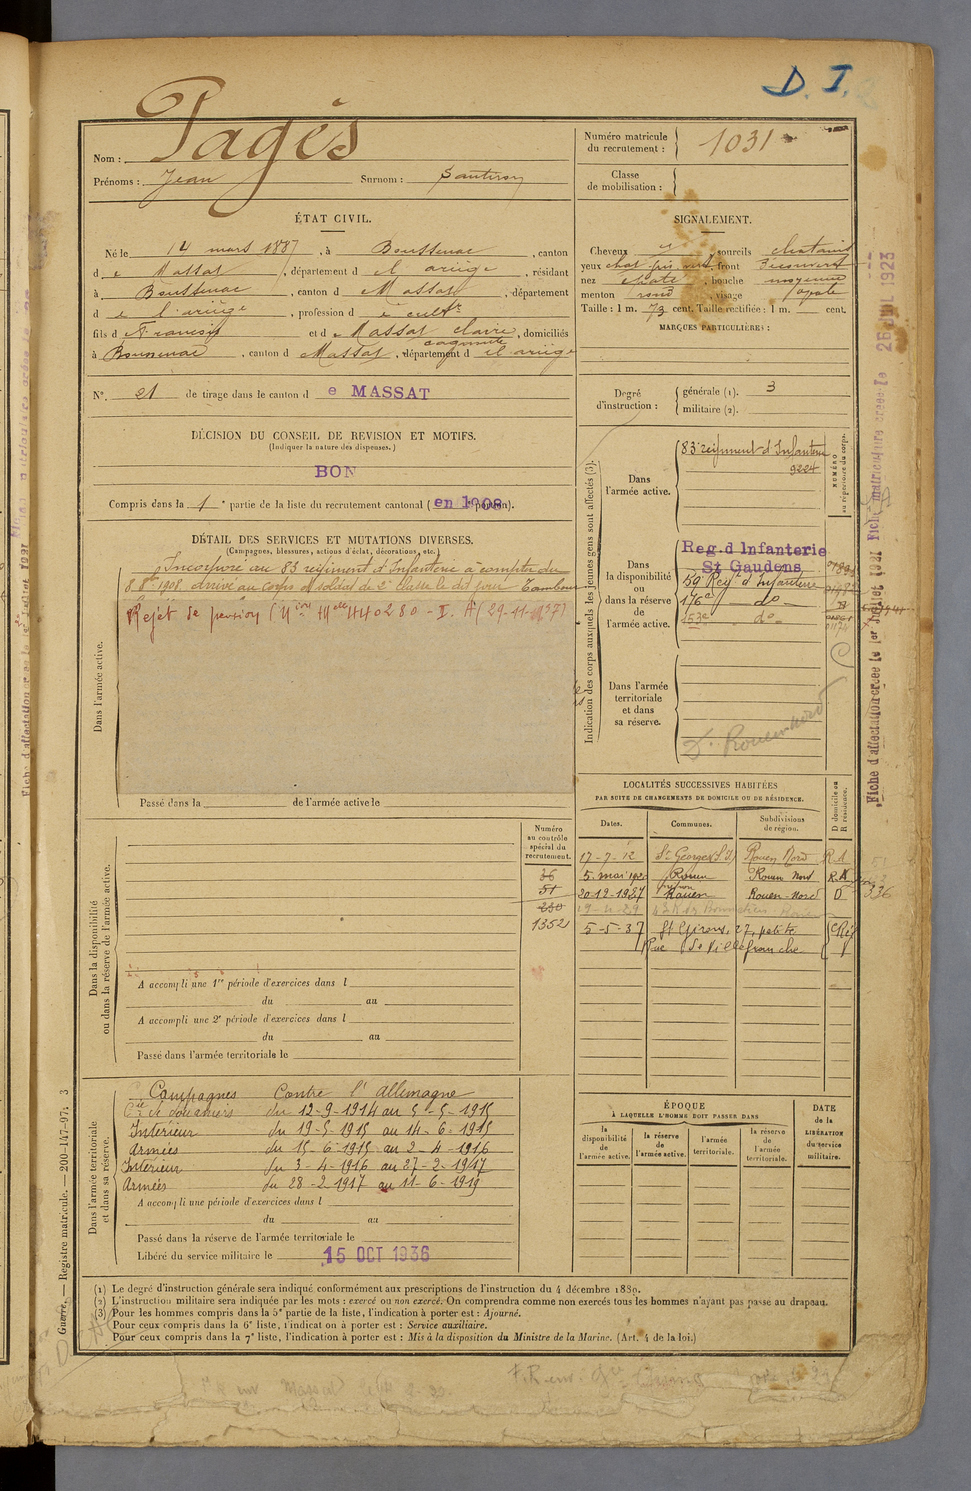 D. I.
Nom : Pagès
Prénoms : Jean Surnom :
Numéro matricule du recrutement : 1031
Classe de mobilisation :
ÉTAT CIVIL.
Né le 14 mars 1887, à Boussenac, canton
d e Massat, département d e l'ariège, résidant
à Boussenac, canton d e Massat, département
d e l'ariège, profession d e cult.
fils d e François et d e Massat claire, domiciliés
à Boussenac, canton d e Massat, département d e l'ariège
SIGNALEMENT.
Cheveux et sourcils chatains
yeux front
nez , bouche moyenne
menton rond, visage
Taille : 1 m. 73 cent. Taille rectifiée : 1 m. cent.
MARQUES PARTICULIÈRES :
N°. 21 de tirage dans le canton d e MASSAT
Degré d'instruction : générale (1). 3
militaire (2).
DÉCISION DU CONSEIL DE REVISION ET MOTIFS.
(Indiquer la nature des dispenses.)
BON
Compris dans la 1e partie de la liste du recrutement cantonal (en 1908).
DÉTAIL DES SERVICES ET MUTATIONS DIVERSES.
(Campagnes, blessures, actions d'éclat, décorations, etc.)
Incorporé au 83 régiment d'Infanterie à compter du
8 8bre 1908 arrivé au corps et soldat de 2e classe le dit jour Tambour
Rejet de pension (29-11-1937)
Dans l'armée active.
Passé dans la de l'armée active le
Indication des corps auxquels les jeunes gens sont affectés (3).
NUMÉRO au répertoire du corps.
Dans l'armée active.
83 régiment d'Infanterie
9224
Dans la disponibilité ou dans la réserve de l'armée active.
Reg. d Infanterie
St Gaudens
59 Regt d'Infanterie
176e do
153e do
Dans l'armée territoriale et dans sa réserve.
D. Rouen nord
LOCALITÉS SUCCESSIVES HABITÉES
PAR SUITE DE CHANGEMENTS DE DOMICILE OU DE RÉSIDENCE.
D domicile ou R résidence.
Dates. Communes. Subdivisions de région.
17-7-12 St Georges (S.I.) Rouen Nord R
5 mai 1920 Rouen Rouen Nord R
20-12-1927 Rouen Rouen-Nord D
19-4-29
5-5-37 St Girons, 27, petite
Rue St Villefranche
336
Dans la disponibilité ou dans la réserve de l'armée active.
Numéro au contrôle spécial du recrutement.
36
51
230
1352
A accompli une 1re période d'exercices dans l
du au
A accompli une 2e période d'exercices dans l
du au
Passé dans l'armée territoriale le
Dans l'armée territoriale et dans sa réserve.
Campagnes Contre l'Allemagne
Cie de douaniers du 12-9-1914 au 5-5-1915
Intérieur du 19-5-1915 au 14-6-1915
Armées du 15-6-1915 au 2-4-1916
Intérieur du 3-4-1916 au 27-2-1917
Armées du 28-2-1917 au 11-6-1919
A accompli une période d'exercices dans l
du au
Passé dans la réserve de l'armée territoriale le
Libéré du service militaire le 15 OCT 1936
ÉPOQUE
À LAQUELLE L'HOMME DOIT PASSER DANS
la disponibilité de l'armée active.
la réserve de l'armée active.
l'armée territoriale.
la réserve de l'armée territoriale.
DATE de la LIBÉRATION du service militaire.
(1) Le degré d'instruction générale sera indiqué conformément aux prescriptions de l'instruction du 4 décembre 1889.
(2) L'instruction militaire sera indiquée par les mots : exercé ou non exercé. On comprendra comme non exercés tous les hommes n'ayant pas passé au drapeau.
(3) Pour les hommes compris dans la 5e partie de la liste, l'indication à porter est : Ajourné.
Pour ceux compris dans la 6e liste, l'indication à porter est : Service auxiliaire.
Pour ceux compris dans la 7e liste, l'indication à porter est : Mis à la disposition du Ministre de la Marine. (Art. 4 de la loi.)
Guerre. — Registre matricule. — 200-147-97. 3
Fiche matriculaire créée le 26 JUIL 1923
Fiche d'affectation créée le 1er Juillet 1921